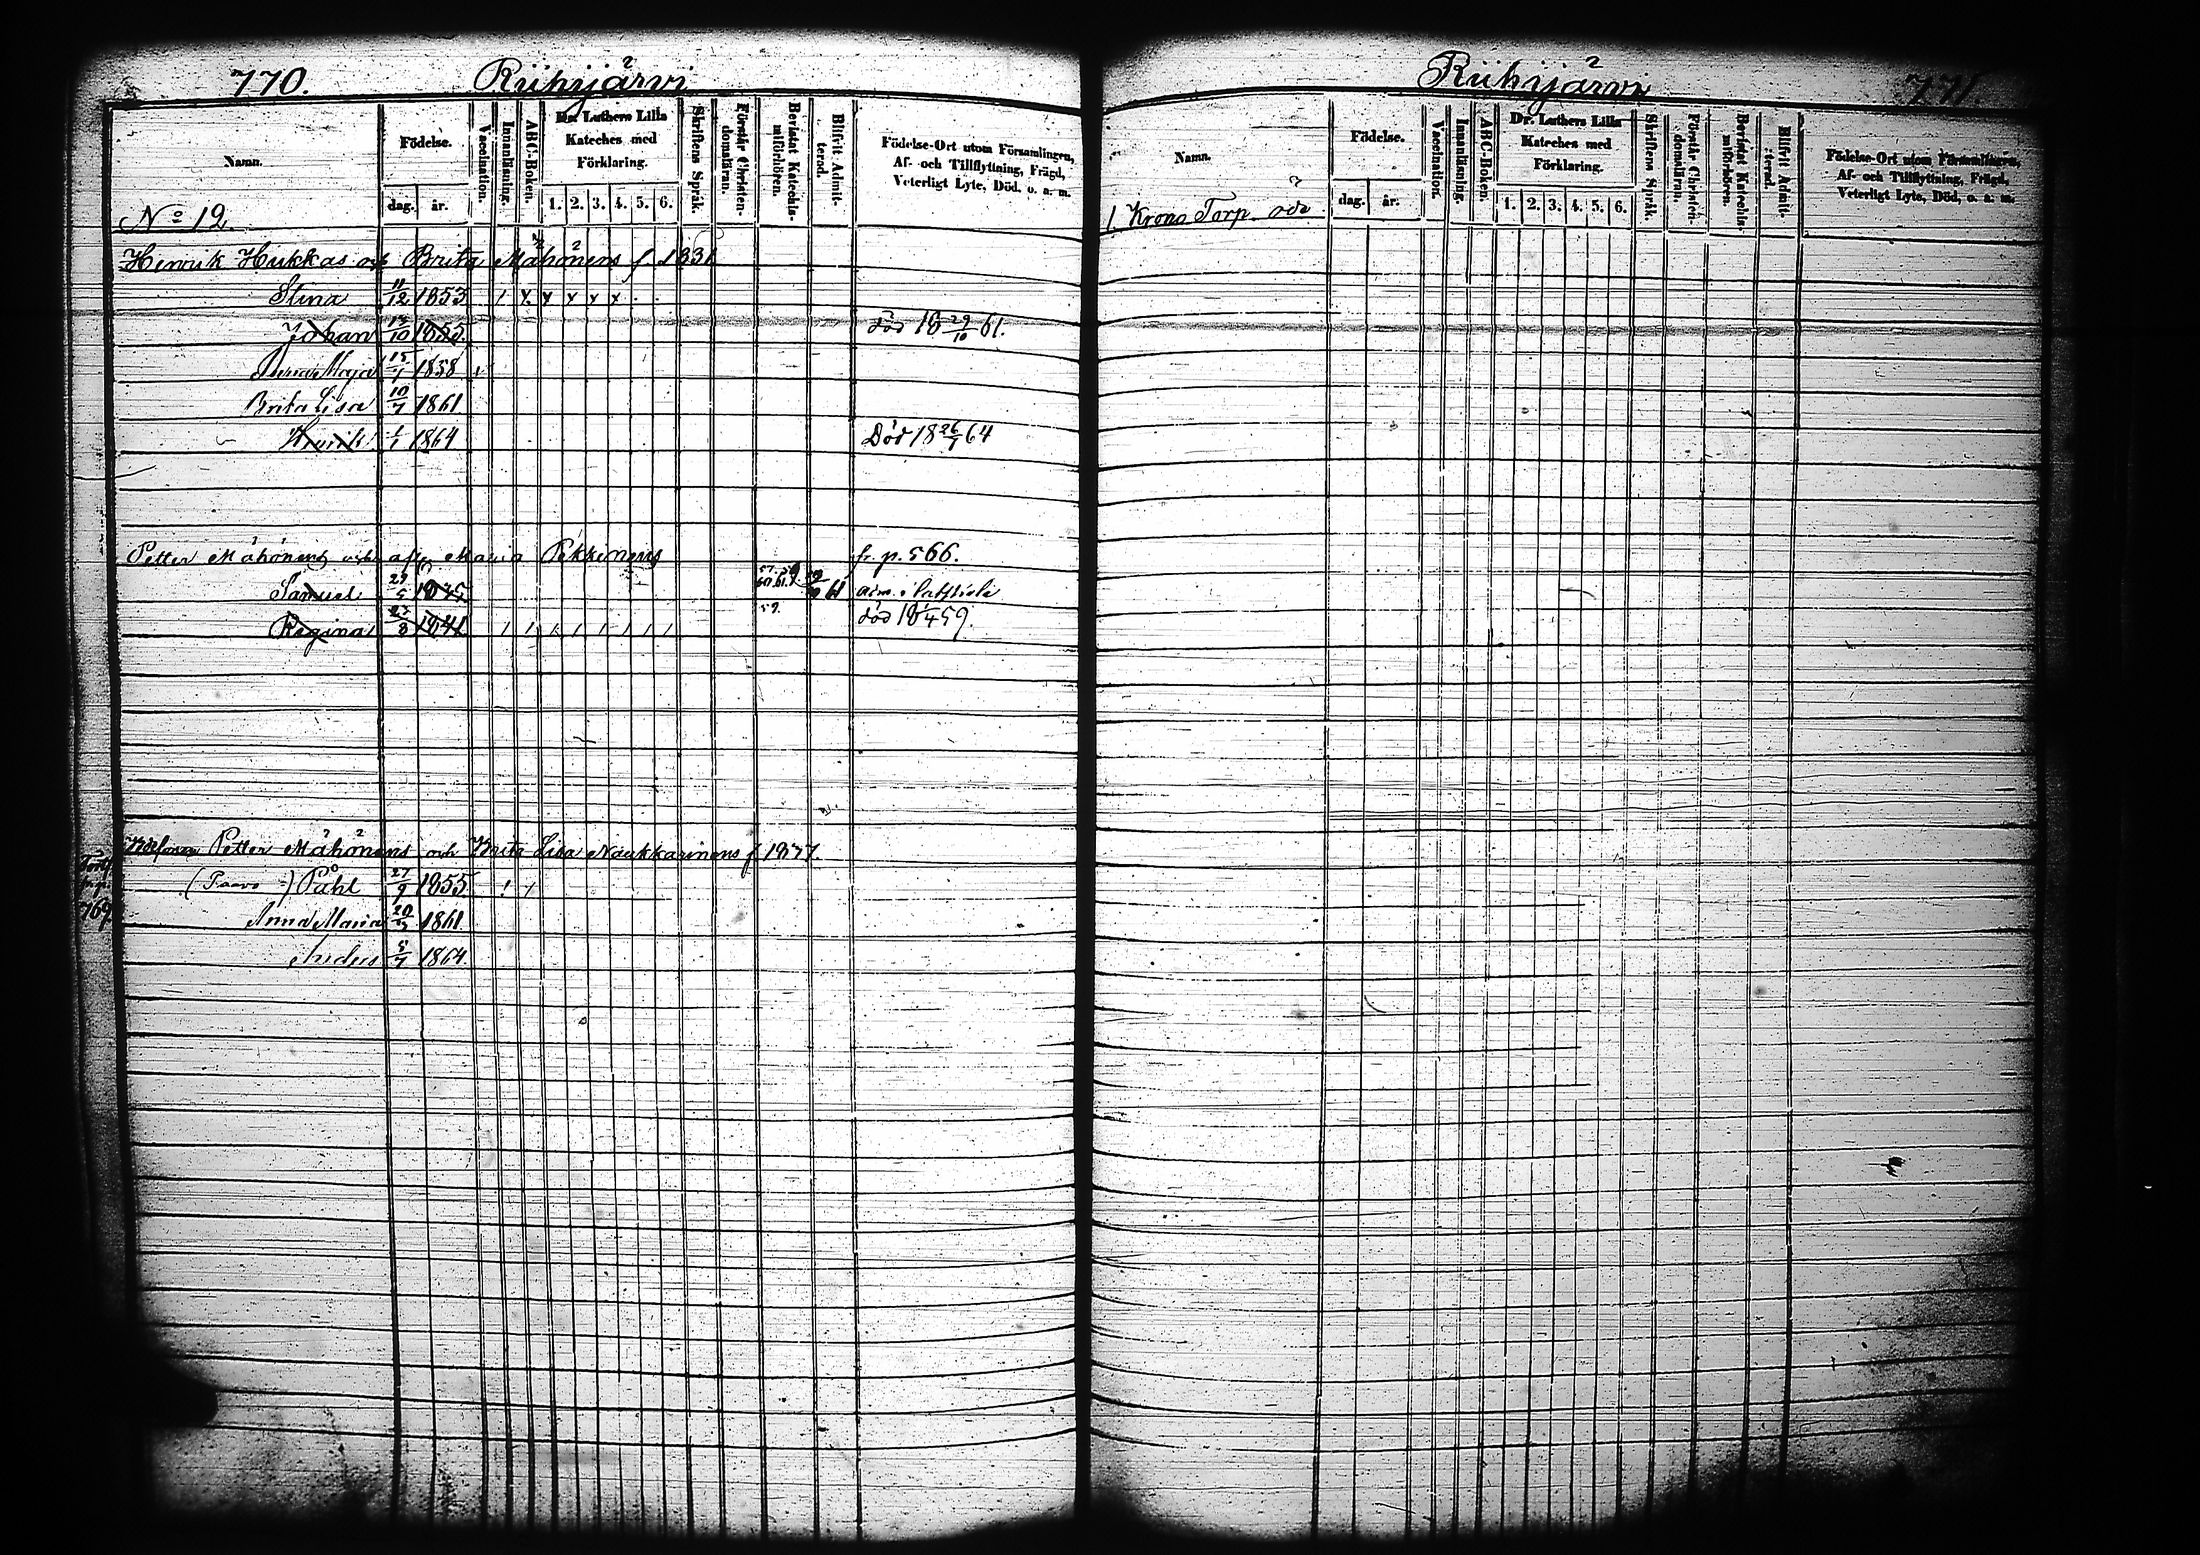 770. Riihijärvi
Namn. Födelse. Vaccination. Innanläsning. ABC-Boken. Dr. Luthers Lilla Kateches med Förklaring. Skriftens Språk. Förstår Christendomsläran. Bevistat Katechismiförhören. Blifvit Admitterad. Födelse-Ort utom Församlingen, Af- och Tillflyttning, Frägd, Veterligt Lyte, Död, o. a. m.
dag. år. 1. 2. 3. 4. 5. 6.
No 12.
Henrik Hukkas och Brita Mähönens f 1831
Stina 11/12 1853
Johan 14/10 1855. död 18 29/10 61.
Anna Maja 15/1 1858
Brita Lisa 10/7 1861
Henrik 1/1 1864 Död 18 26/1 64
Petter Mähönens och afl. Maria Pekkinens fr. p. 566.
Samuel 29/5 1845 57. 59 60. 61. 61 adm. i
Regina 23/8 1841 59. död 18 1/4 59.
Petter Mähönens och Brita Lisa Naukkarinens f 1877.
(Paavo) Påhl 27/9 1855
769
Anna Maria 20/3 1861
Anders 5/7 1864
Riihijärvi 771.
Namn. Födelse. Vaccination. Innanläsning. ABC-Boken. Dr. Luthers Lilla Kateches med Förklaring. Skriftens Språk. Förstår Christendomsläran. Bevistat Katechismiförhören. Blifvit Admitterad. Födelse-Ort utom Församlingen, Af- och Tillflyttning, Frägd, Veterligt Lyte, Död, o. a. m.
dag. år. 1. 2. 3. 4. 5. 6.
1 Krono Torp